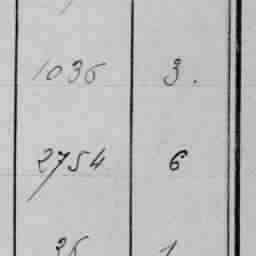 1036 3.
2754 6
26 1